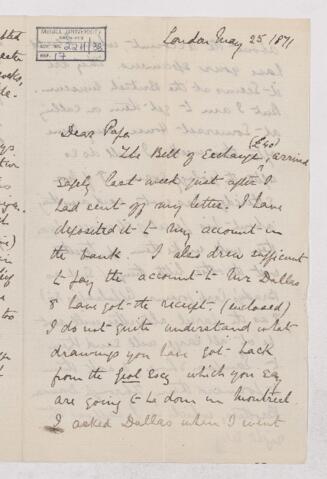 McGILL UNIVERSITY
ARCHIVES
ACC. NO. 2211/38
REF. 17
London May 25 1871
Dear Papa
(£40)
The Bill of Exchange, arrived
safely last week just after I
had sent off my letter. I have
deposited it to my account in
the bank. I also drew sufficient
to pay the account to Mr Dallas
& have got the receipt. (enclosed)
I do not quite understand what
drawings you have got back
from the Geol Socy which you say
are going to be done in Montreal.
I asked Dallas when I went